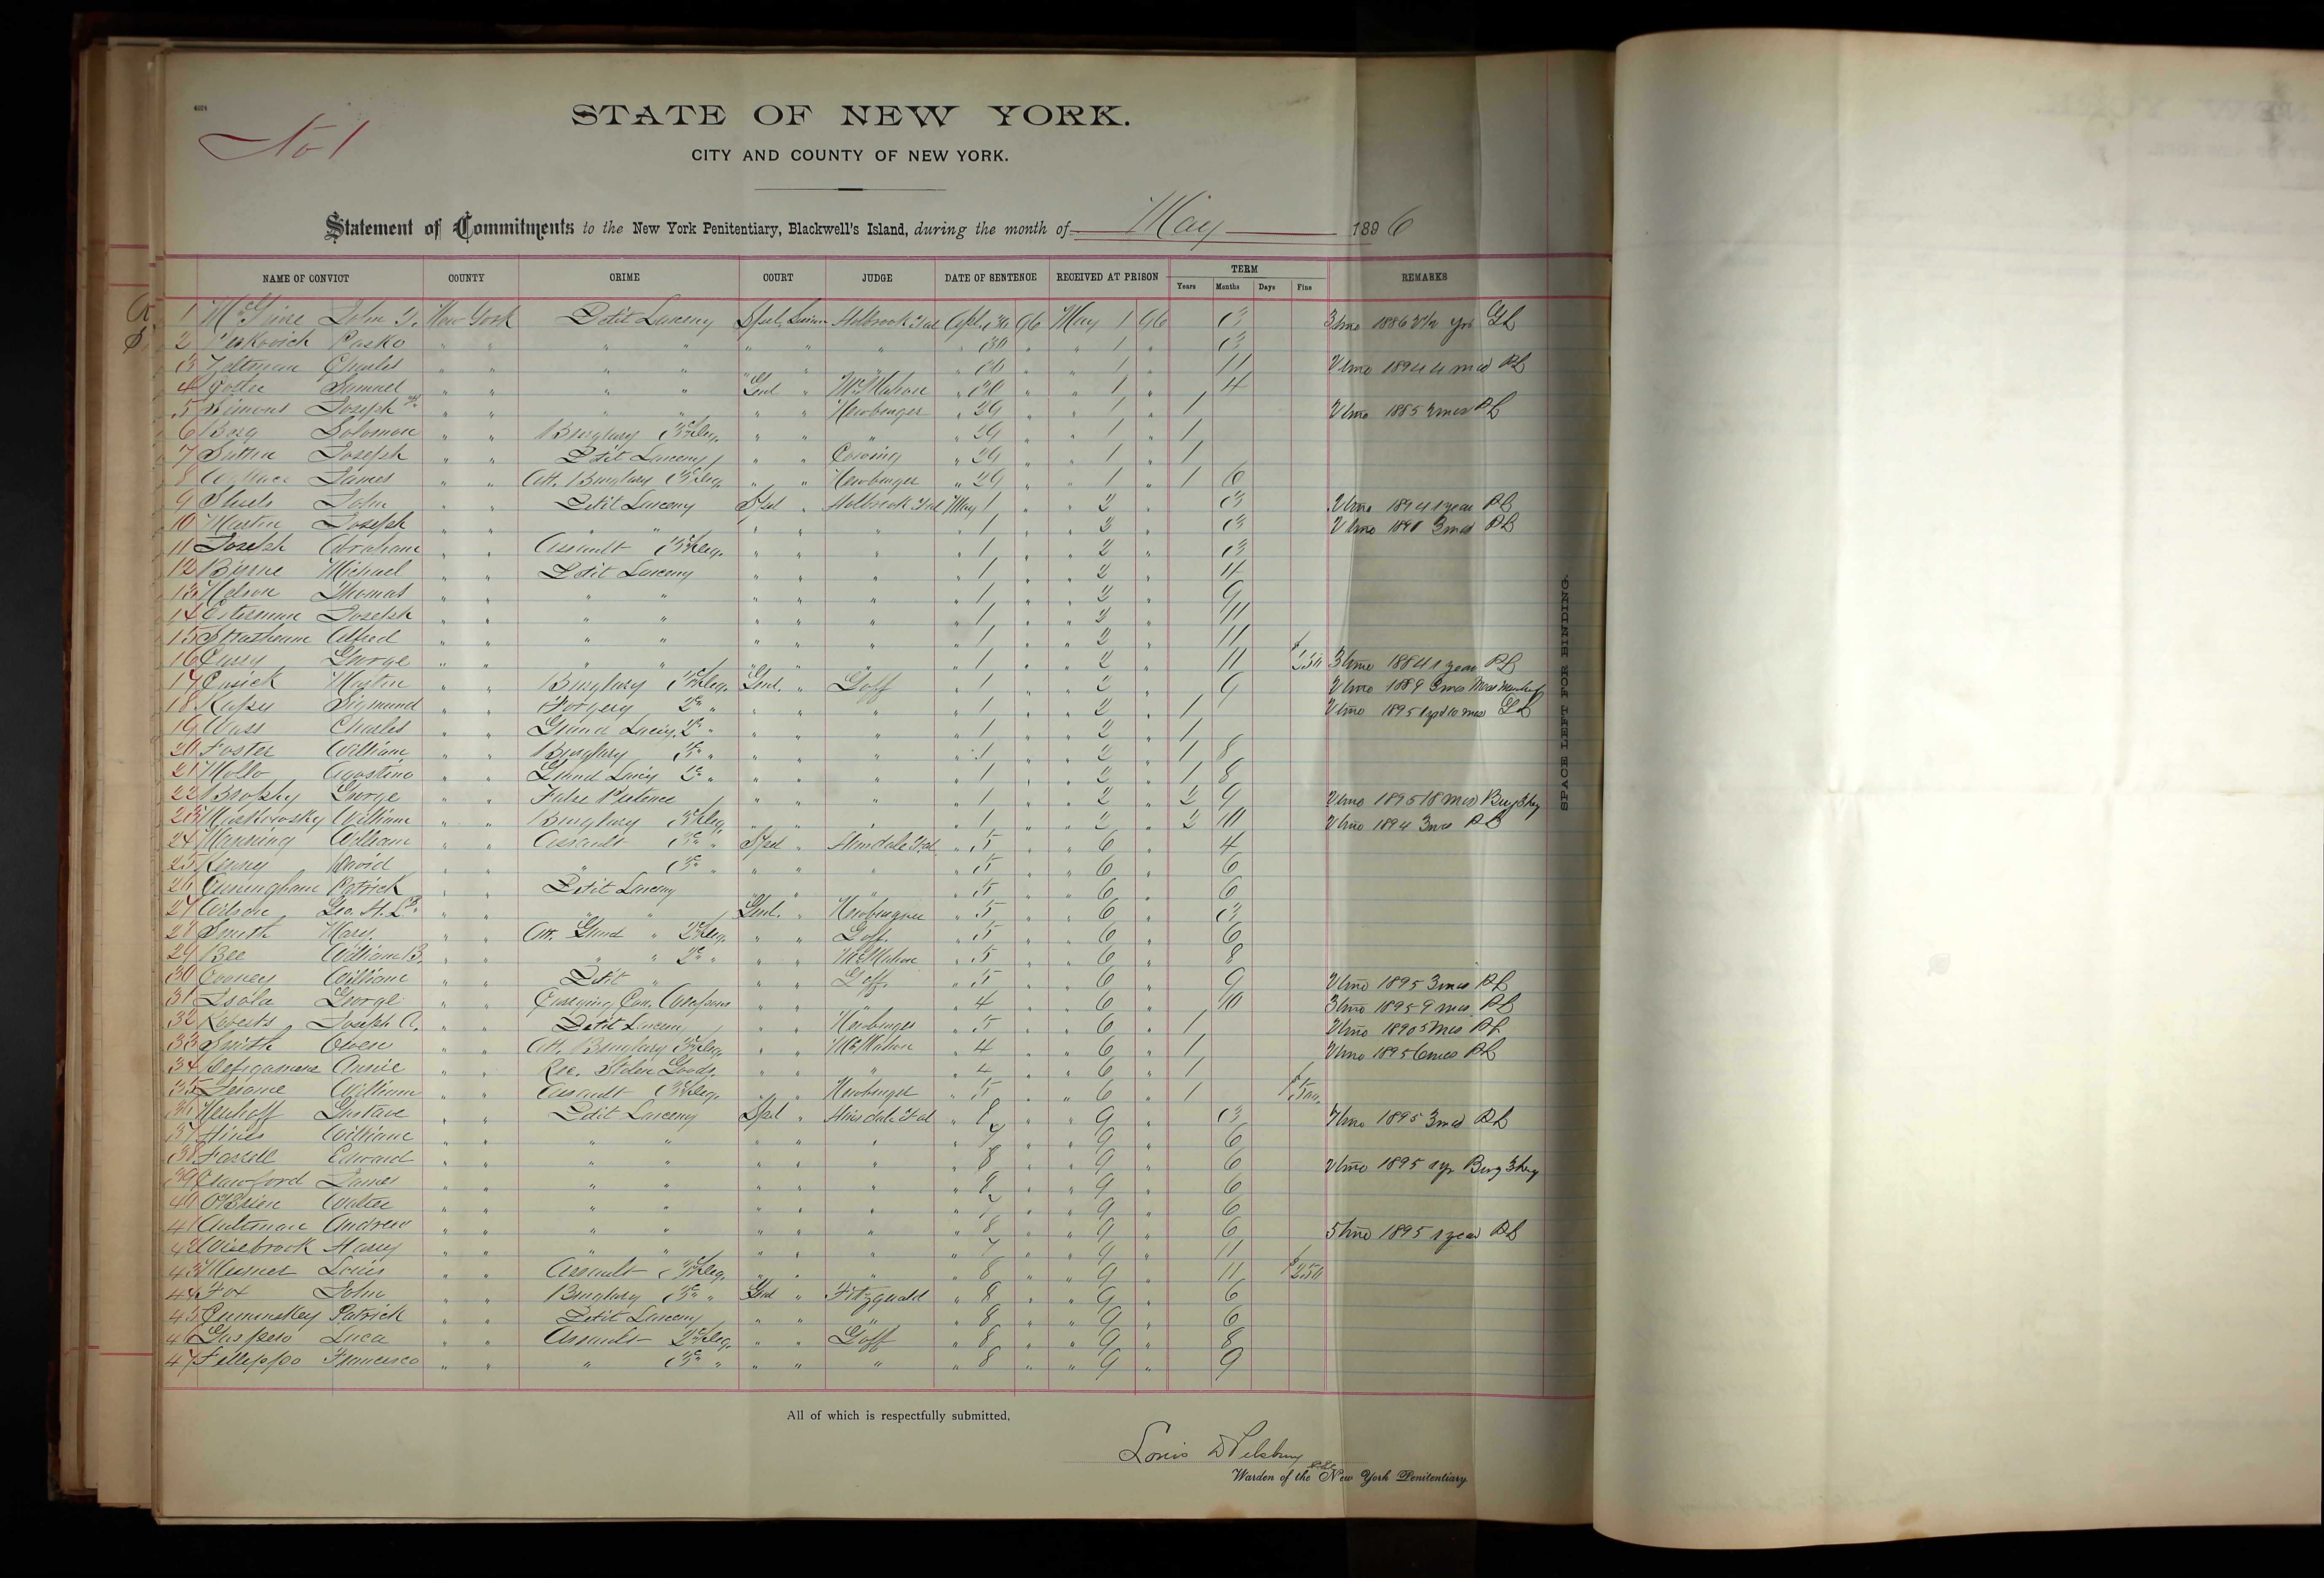 4024
No 1
STATE OF NEW YORK.
CITY AND COUNTY OF NEW YORK.
Statement of Commitments to the New York Penitentiary, Blackwell's Island, during the month of May 1896
NAME OF CONVICT COUNTY CRIME COURT JUDGE DATE OF SENTENCE RECEIVED AT PRISON TERM REMARKS
Years Months Days Fine
1 John J. New York Petit Larceny Spcl. Holbrook Apl. 30 96 May 1 96 3 3 time 1886 2 1/2 yrs GL
2 Pasko " " " " " " " " 30 " " 1 " 3
3 Charles " " " " " " " " " 1 " 11 2 time 1894 4 mos PL
4 Foster Samuel " " " " Genl " McMahon " 30 " " 1 " 4
5 Simons Joseph " " " " " " Newberger " 29 " " 1 " 1 2 time 1885 2 mos PL
6 Berg Solomon " " Burglary 3rd deg. " " " " 29 " " 1 " 1
7 Joseph " " Petit Larceny " " Cowing " 29 " " 1 " 1
8 Wallace James " " Att. Burglary 3rd deg. " " Newberger " 29 " " 1 " 1 6
9 John " " Petit Larceny Spcl " Holbrook May 1 " " 2 " 3 2 time 1894 1 year PL
10 Martin Joseph " " " " " " " " 1 " " 2 " 3 2 time 3 mos PL
11 Joseph Abraham " " Assault 3rd deg. " " " " 1 " " 2 " 3
12 Byrne Michael " " Petit Larceny " " " " 1 " " 2 " 4
13 Nelson Thomas " " " " " " " " 1 " " 2 " 9
14 Esterman Joseph " " " " " " " " 1 " " 2 " 11
15 Alfred " " " " " " " " 1 " " 2 " 11
16 Casey George " " " " " " " " 1 " " 2 " 11 $250 3 time 1884 1 year PL
17 Cusick Martin " " Burglary 3rd deg. Genl. " Goff " 1 " " 2 " 9 2 time 1889 3 mos
18 Sigmund " " Forgery 2d " " " " " 1 " " 2 " 1 2 time 1895 1 yr 10 mos GL
19 Wass Charles " " Grand Larcy. 2d " " " " " 1 " " 2 " 1
20 Foster William " " Burglary 3rd " " " " " 1 " " 2 " 1 8
21 Mollo Agostino " " Grand Larcy 2d " " " " " 1 " " 2 " 1 8
22 Brophy George " " False Pretence " " " " 1 " " 2 " 2 9 2 time 1895 18 mos Burg 3 deg
23 William " " Burglary 3rd deg " " " " 1 " " 2 " 2 10 2 time 1894 3 mos PL
24 Manning William " " Assault 3rd " Spcl " Hinsdale " 5 " " 6 " 4
25 Kenny David " " " 3rd " " " " " 5 " " 6 " 6
26 Cunningham Patrick " " Petit Larceny " " " " 5 " " 6 " 6
27 Wilson Geo. H. " " " " Genl. " Newberger " 5 " " 6 " 3
28 Smith Mary " " Att. Grand " 2d deg. " " Goff. " 5 " " 6 " 6
29 Bee William B. " " " " " 2d " " " McMahon " 5 " " 6 " 8
30 Conners William " " Petit " " " Goff. " 5 " " 6 " 9 2 time 1895 3 mos PL
31 Isola George " " Carrying Con. Weapons " " " " 4 " " 6 " 10 3 time 1895 9 mos PL
32 Roberts Joseph A. " " Petit Larceny " " Newberger " 5 " " 6 " 1 2 time 1890 5 mos PL
33 Smith Owen " " Att. Burglary 3rd deg. " " McMahon " 4 " " 6 " 1 2 time 1895 6 mos PL
34 Annie " " Rec. Stolen Goods. " " " " 4 " " 6 " 1
35 Jerome William " " Assault 3rd deg. " " Newberger " 5 " " 6 " 1 $500
36 Neuhoff Gustave " " Petit Larceny Spcl " Hinsdale " 8 " " 9 " 3 7 time 1895 3 mos PL
37 Hines William " " " " " " " " 7 " " 9 " 6
38 Farrell Edward " " " " " " " " 8 " " 9 " 6 2 time 1895 1 yr Burg 3 deg
39 Crawford James " " " " " " " " 8 " " 9 " 6
40 O'Brien Walter " " " " " " " " 7 " " 9 " 6
41 Aultman Andrew " " " " " " " " 8 " " 9 " 6 5 time 1895 1 year PL
42 Wisebrook Harry " " " " " " " " 7 " " 9 " 11
43 Louis " " Assault 3rd deg. " " " " 8 " " 9 " 11 $250
44 Fox John " " Burglary 3rd " Genl " Fitzgerald " 8 " " 9 " 6
45 Cuminskey Patrick " " Petit Larceny " " " " 8 " " 9 " 6
46 Gaspero Luca " " Assault 2d deg. " " Goff " 8 " " 9 " 8
47 Fillippo Francesco " " " 3rd " " " " " 8 " " 9 " 9
SPACE LEFT FOR BINDING.
All of which is respectfully submitted,
Louis D Pilsbury
Warden of the New York Penitentiary.